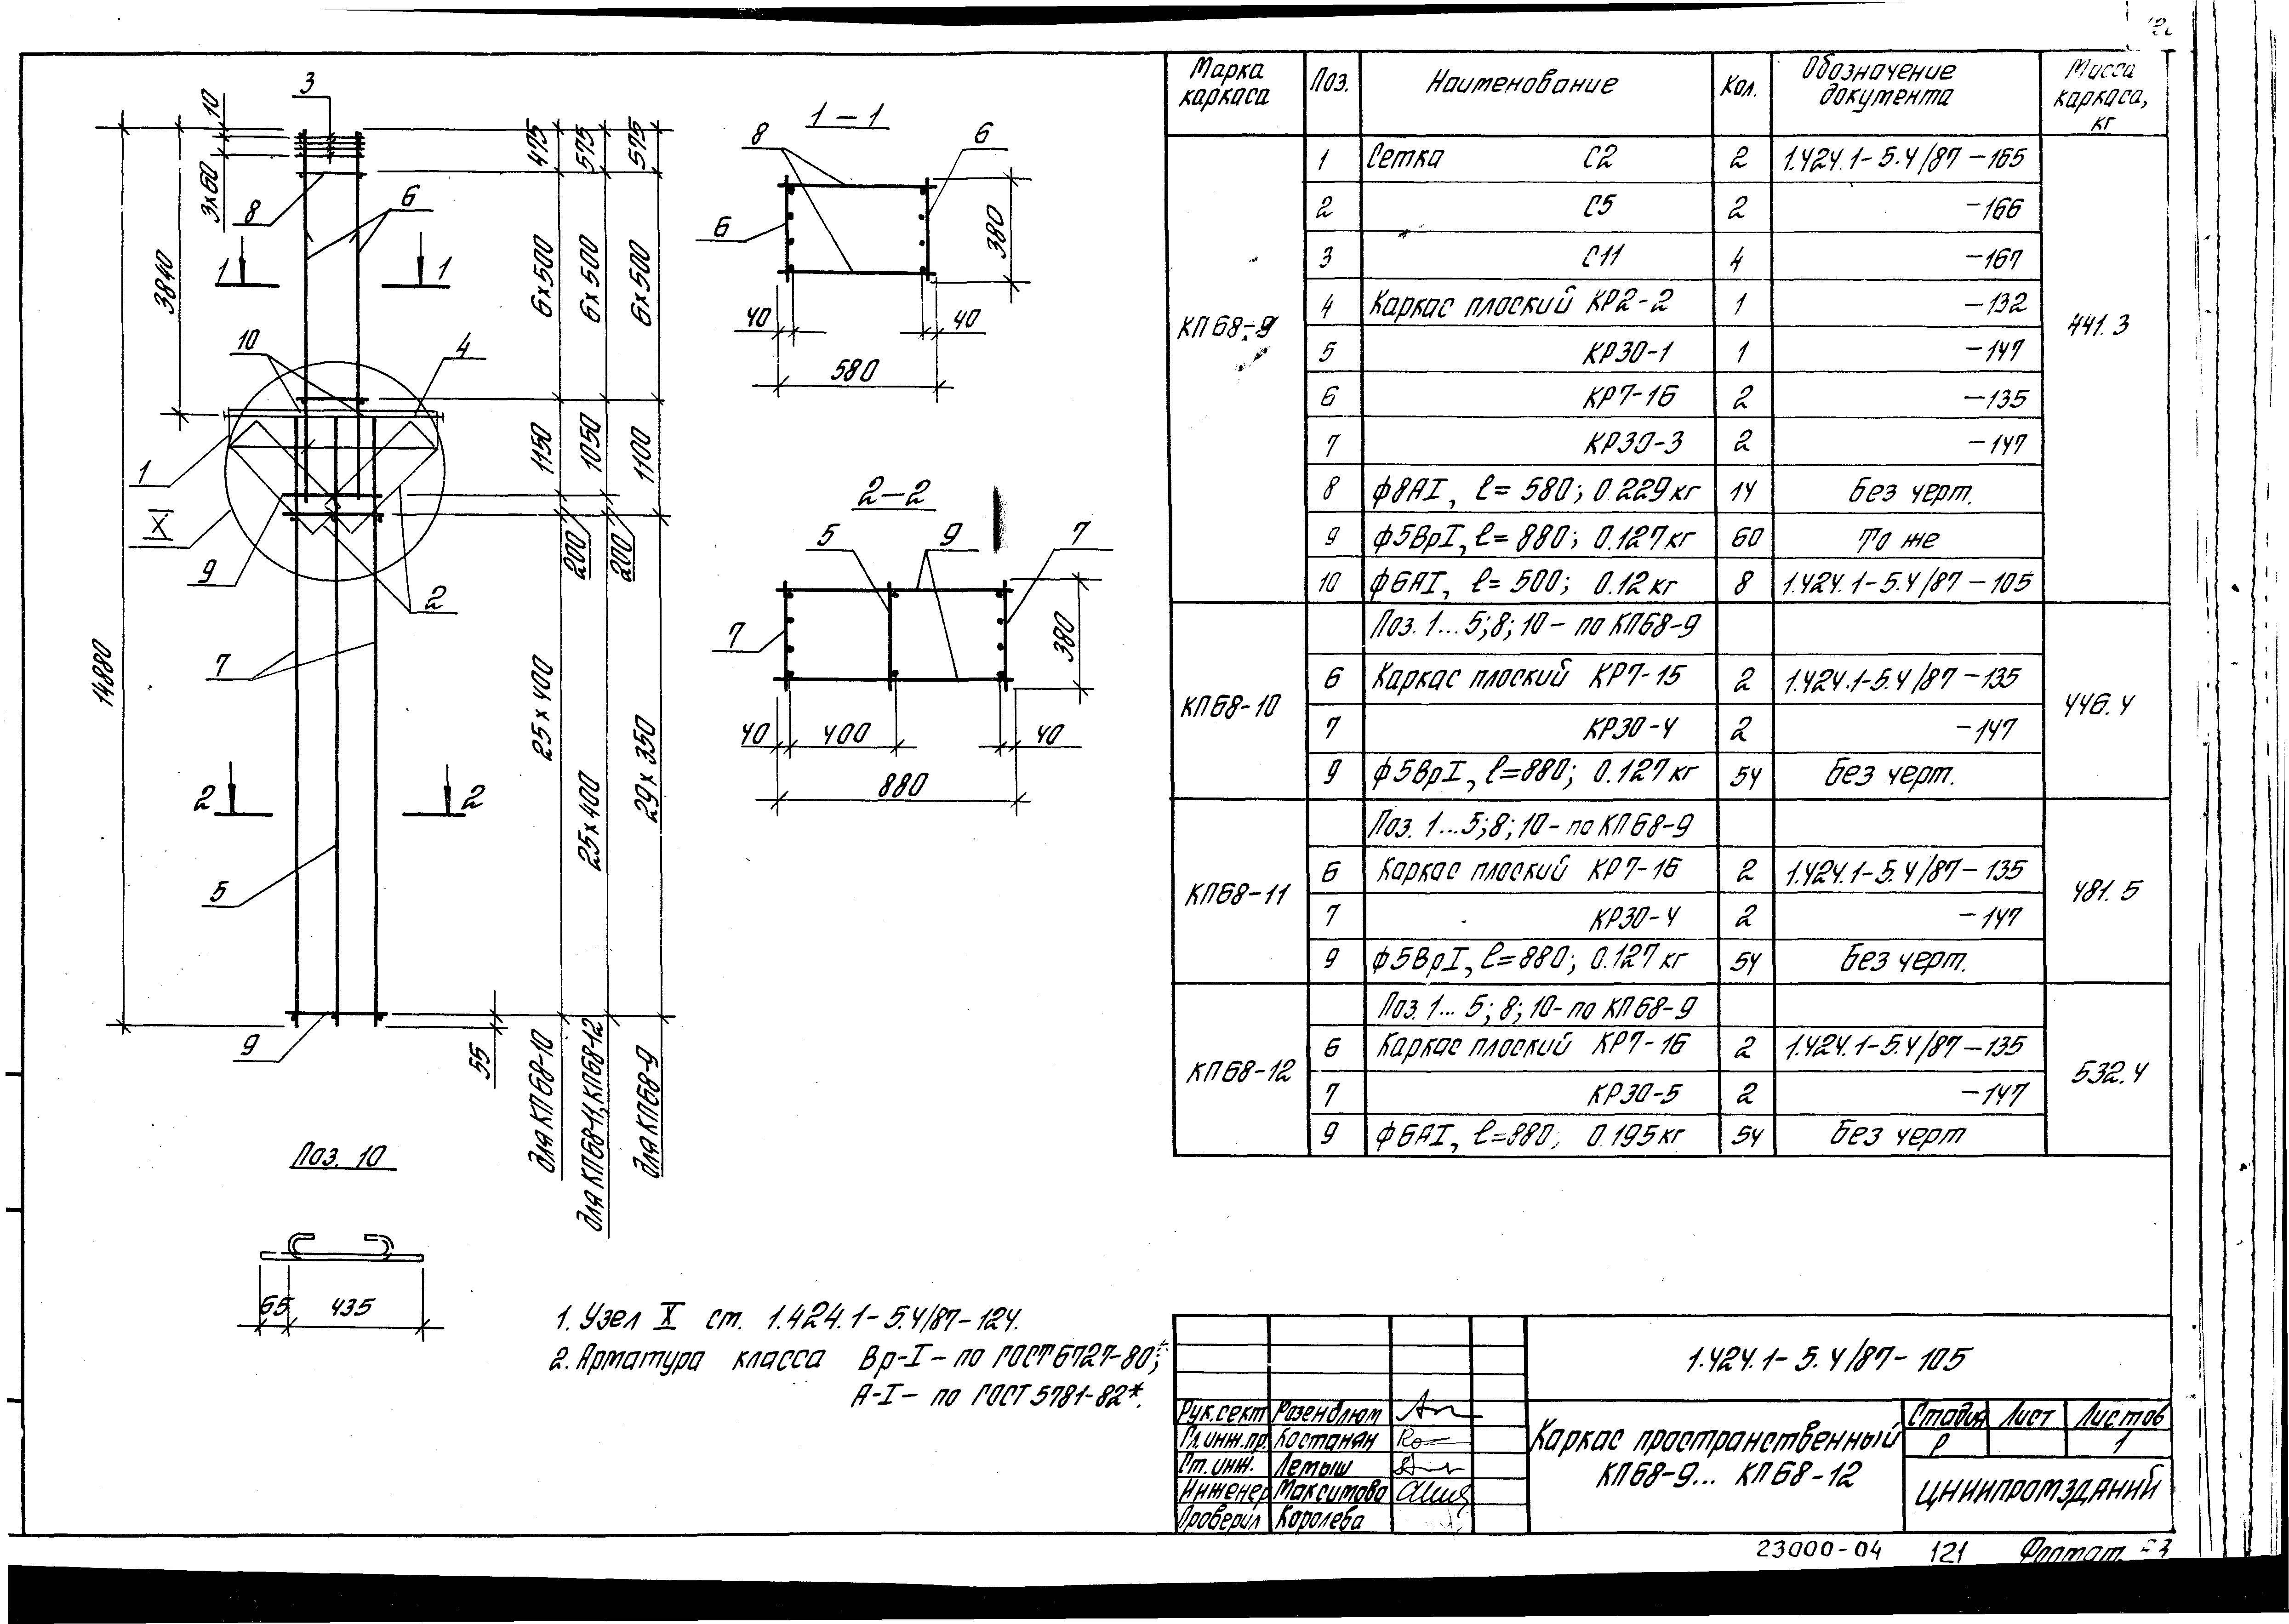 Марка каркаса | Поз. | Наименование | Кол. | Обозначение документа | Масса каркаса, кг
КП68-9 | 1 | Сетка С2 | 2 | 1.424.1-5.4/87-165 | 441.3
2 | С5 | 2 | -166
3 | С11 | 4 | -167
4 | Каркас плоский КР2-2 | 1 | -132
5 | КР30-1 | 1 | -147
6 | КР7-16 | 2 | -135
7 | КР30-3 | 2 | -147
8 | ф8АI, ℓ=580; 0.229кг | 14 | Без черт.
9 | ф5ВрI, ℓ=880; 0.127кг | 60 | То же
10 | ф6АI, ℓ=500; 0.12кг | 8 | 1.424.1-5.4/87-105
КП68-10 | Поз. 1...5;8;10-по КП68-9 | 446.4
6 | Каркас плоский КР7-15 | 2 | 1.424.1-5.4/87-135
7 | КР30-4 | 2 | -147
9 | ф5ВрI, ℓ=880; 0.127кг | 54 | Без черт.
КП68-11 | Поз. 1...5;8;10-по КП68-9 | 481.5
6 | Каркас плоский КР7-16 | 2 | 1.424.1-5.4/87-135
7 | КР30-4 | 2 | -147
9 | ф5ВрI, ℓ=880; 0.127кг | 54 | Без черт.
КП68-12 | Поз. 1...5;8;10-по КП68-9 | 532.4
6 | Каркас плоский КР7-16 | 2 | 1.424.1-5.4/87-135
7 | КР30-5 | 2 | -147
9 | ф6АI, ℓ=880; 0.195кг | 54 | Без черт
3
10
3х60
3840
14880
8
6
1 1
10
4
1
X
9
2
7
2 2
5
9
55
475
6х500
1150
200
25х400
для КП68-10
575
6х500
1050
200
25х400
для КП68-11, КП68-12
575
6х500
1100
29х350
для КП68-9
1-1
8
6
6
380
40
40
580
2-2
5
9
7
7
380
40
400
40
880
Поз. 10
65
435
1. Узел X см. 1.424.1-5.4/87-124.
2. Арматура класса Вр-I-по ГОСТ 6727-80*;
А-I-по ГОСТ 5781-82*.
1.424.1-5.4/87-105
Рук.сект Розенблюм
Гл.инж.пр. Костанян
Ст.инж. Летыш
Инженер Максимова
Проверил Королева
Каркас пространственный
КП68-9... КП68-12
Стадия Лист Листов
Р 1
ЦНИИПРОМЗДАНИЙ
23000-04 121 Формат